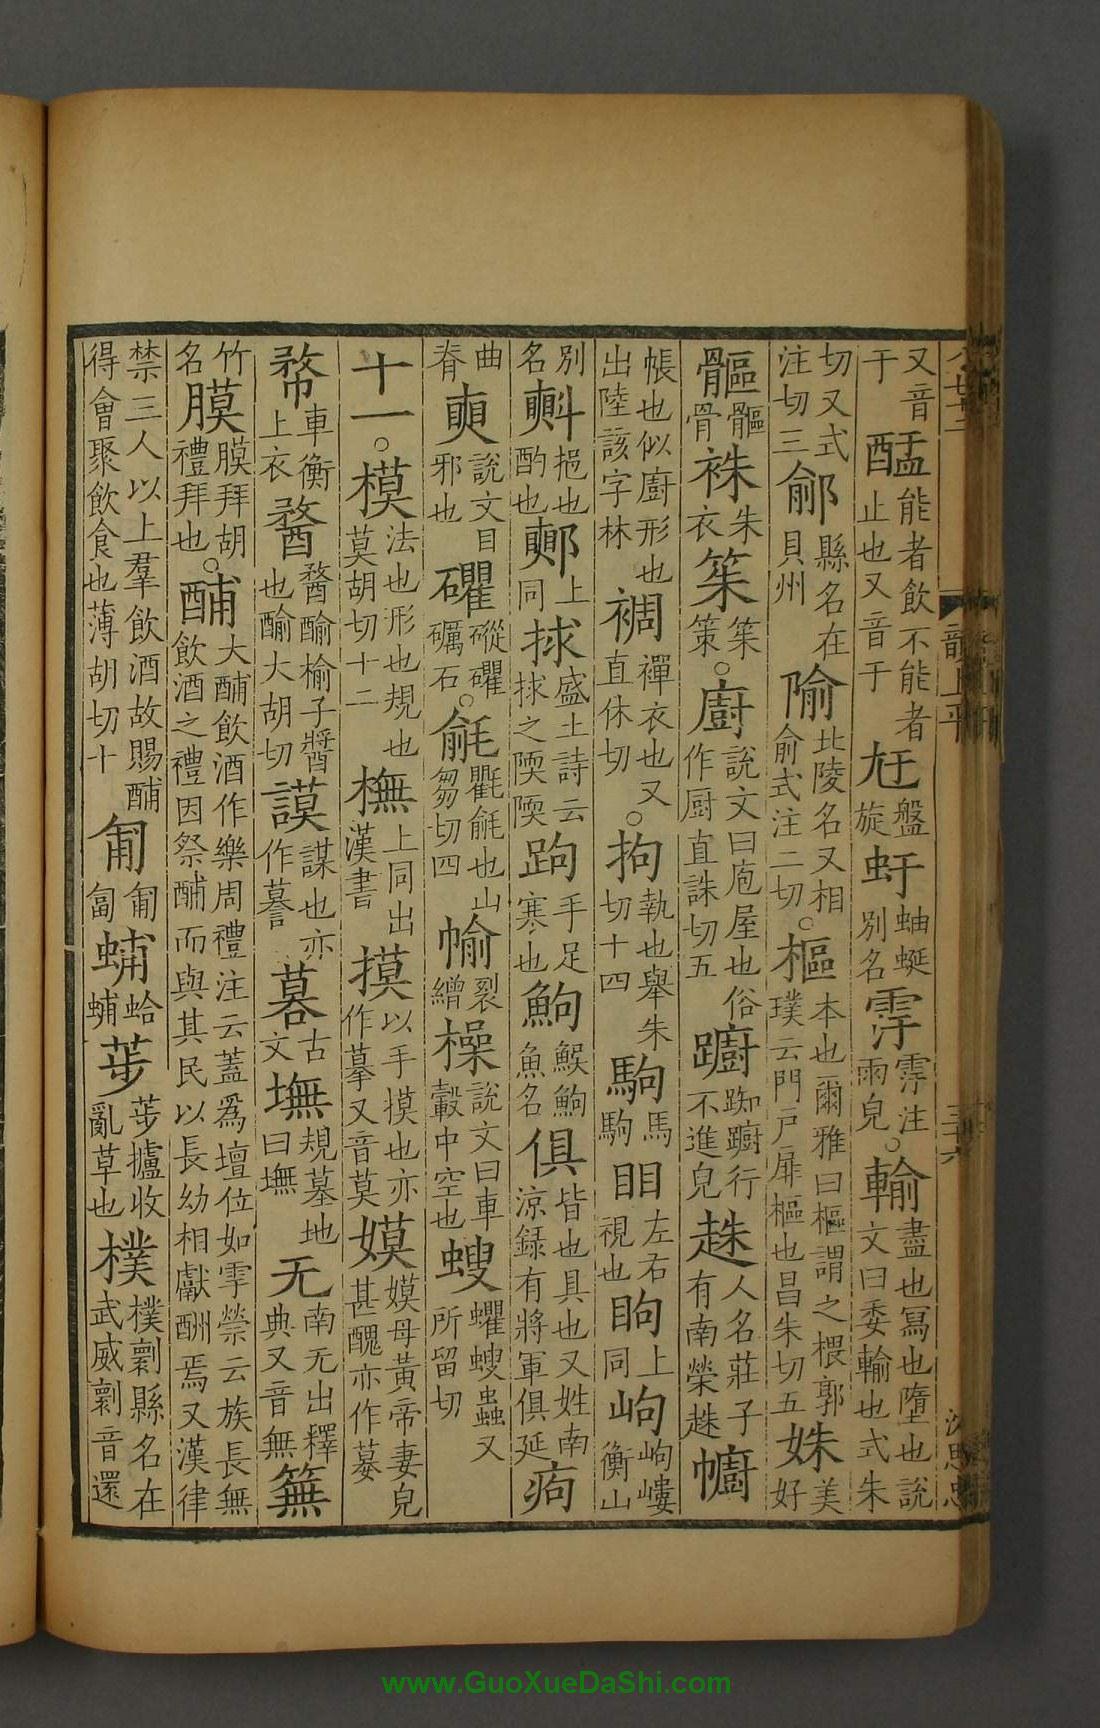 又音于 𨠎 能者飲不能者止也又音于 尪 盤旋 虶 蚰蜒別名 雩 雩注雨皃○輸 盡也寫也墮也說文曰委輸也式朱
切又式注切三 鄃 縣名在貝州 隃 北陵名又相俞式注二切○樞 本也爾雅曰樞謂之椳郭璞云門戶扉樞也昌朱切五 姝 美好
䯱 䯱骨 袾 朱衣 䇡 䇡策○廚 說文曰庖屋也俗作厨直誅切五 躕 踟躕行不進皃 趎 人名莊子有南榮趎 幮
帳也似廚形也出陸該字林 裯 襌衣也又直休切○拘 執也舉朱切十四 駒 馬駒 䀠 左右視也 眗 上同 岣 岣嶁衡山
別名 㪺 挹也酌也 上同 捄 盛土詩云捄之陾陾 跔 手足寒也 鮈 鯸鮈魚名 俱 皆也具也又姓南涼録有將軍俱延 痀
曲脊 䀠 說文目邪也 礭石○㲣 氍㲣也山芻切四 㡏 裂繒 橾 說文曰車轂中空也 螋 蠷螋蟲又所留切
十一○模 法也形也規也莫胡切十二 橅 上同出漢書 摸 以手摸也亦作摹又音莫 嫫 嫫母黃帝妻皃甚醜亦作㜈
車衡上衣 䤅 䤅醶榆子醬也醶大胡切 謨 謀也亦作謩 暮 古文 墲 規墓地曰墲 无 南无出釋典又音無 䉑
竹名 膜 膜拜胡禮拜也○酺 大酺飲酒作樂周禮注云蓋爲壇位如雩禜云族長無飲酒之禮因祭酺而與其民以長幼相獻酬焉又漢律
禁三人以上羣飲酒故賜酺得會聚飲食也薄胡切十 匍 匍匐 蒱 蛤蒱 荹 荹攎收亂草也 樸 樸㔥縣名在武威㔥音還
韻上平
三十六
沈思忠
www.GuoXueDaShi.com